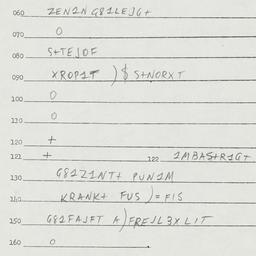 060 ZEN2N G82LEJG+
070 O
080 S+TEJOF
090 XROP1T )$ S+NORXT
100 O
110 O
120 +
121 + 122 1MBAS+R1G+
130 G81Z1NT+ PUN1M
140 KRANK+ FUS )=FIS
150 G82FAJFT A)FREJL3XLIT
160 O